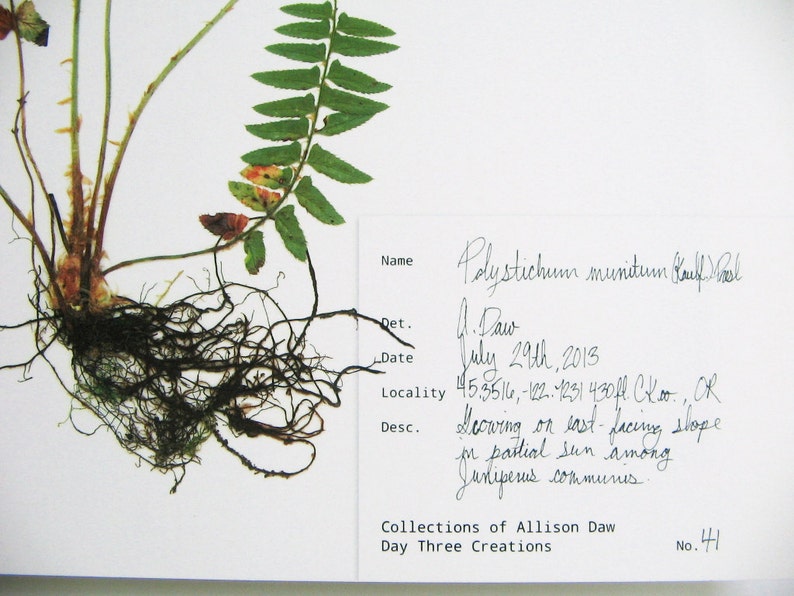 Name Polystichum munitum (Kaulf.) Presl
Det. A. Daw
Date July 29th, 2013
Locality 45.3516, -122.7231 430ft. CK co., OR
Desc. Growing on east-facing slope
in partial sun among
Juniperus communis.
Collections of Allison Daw
Day Three Creations No. 41